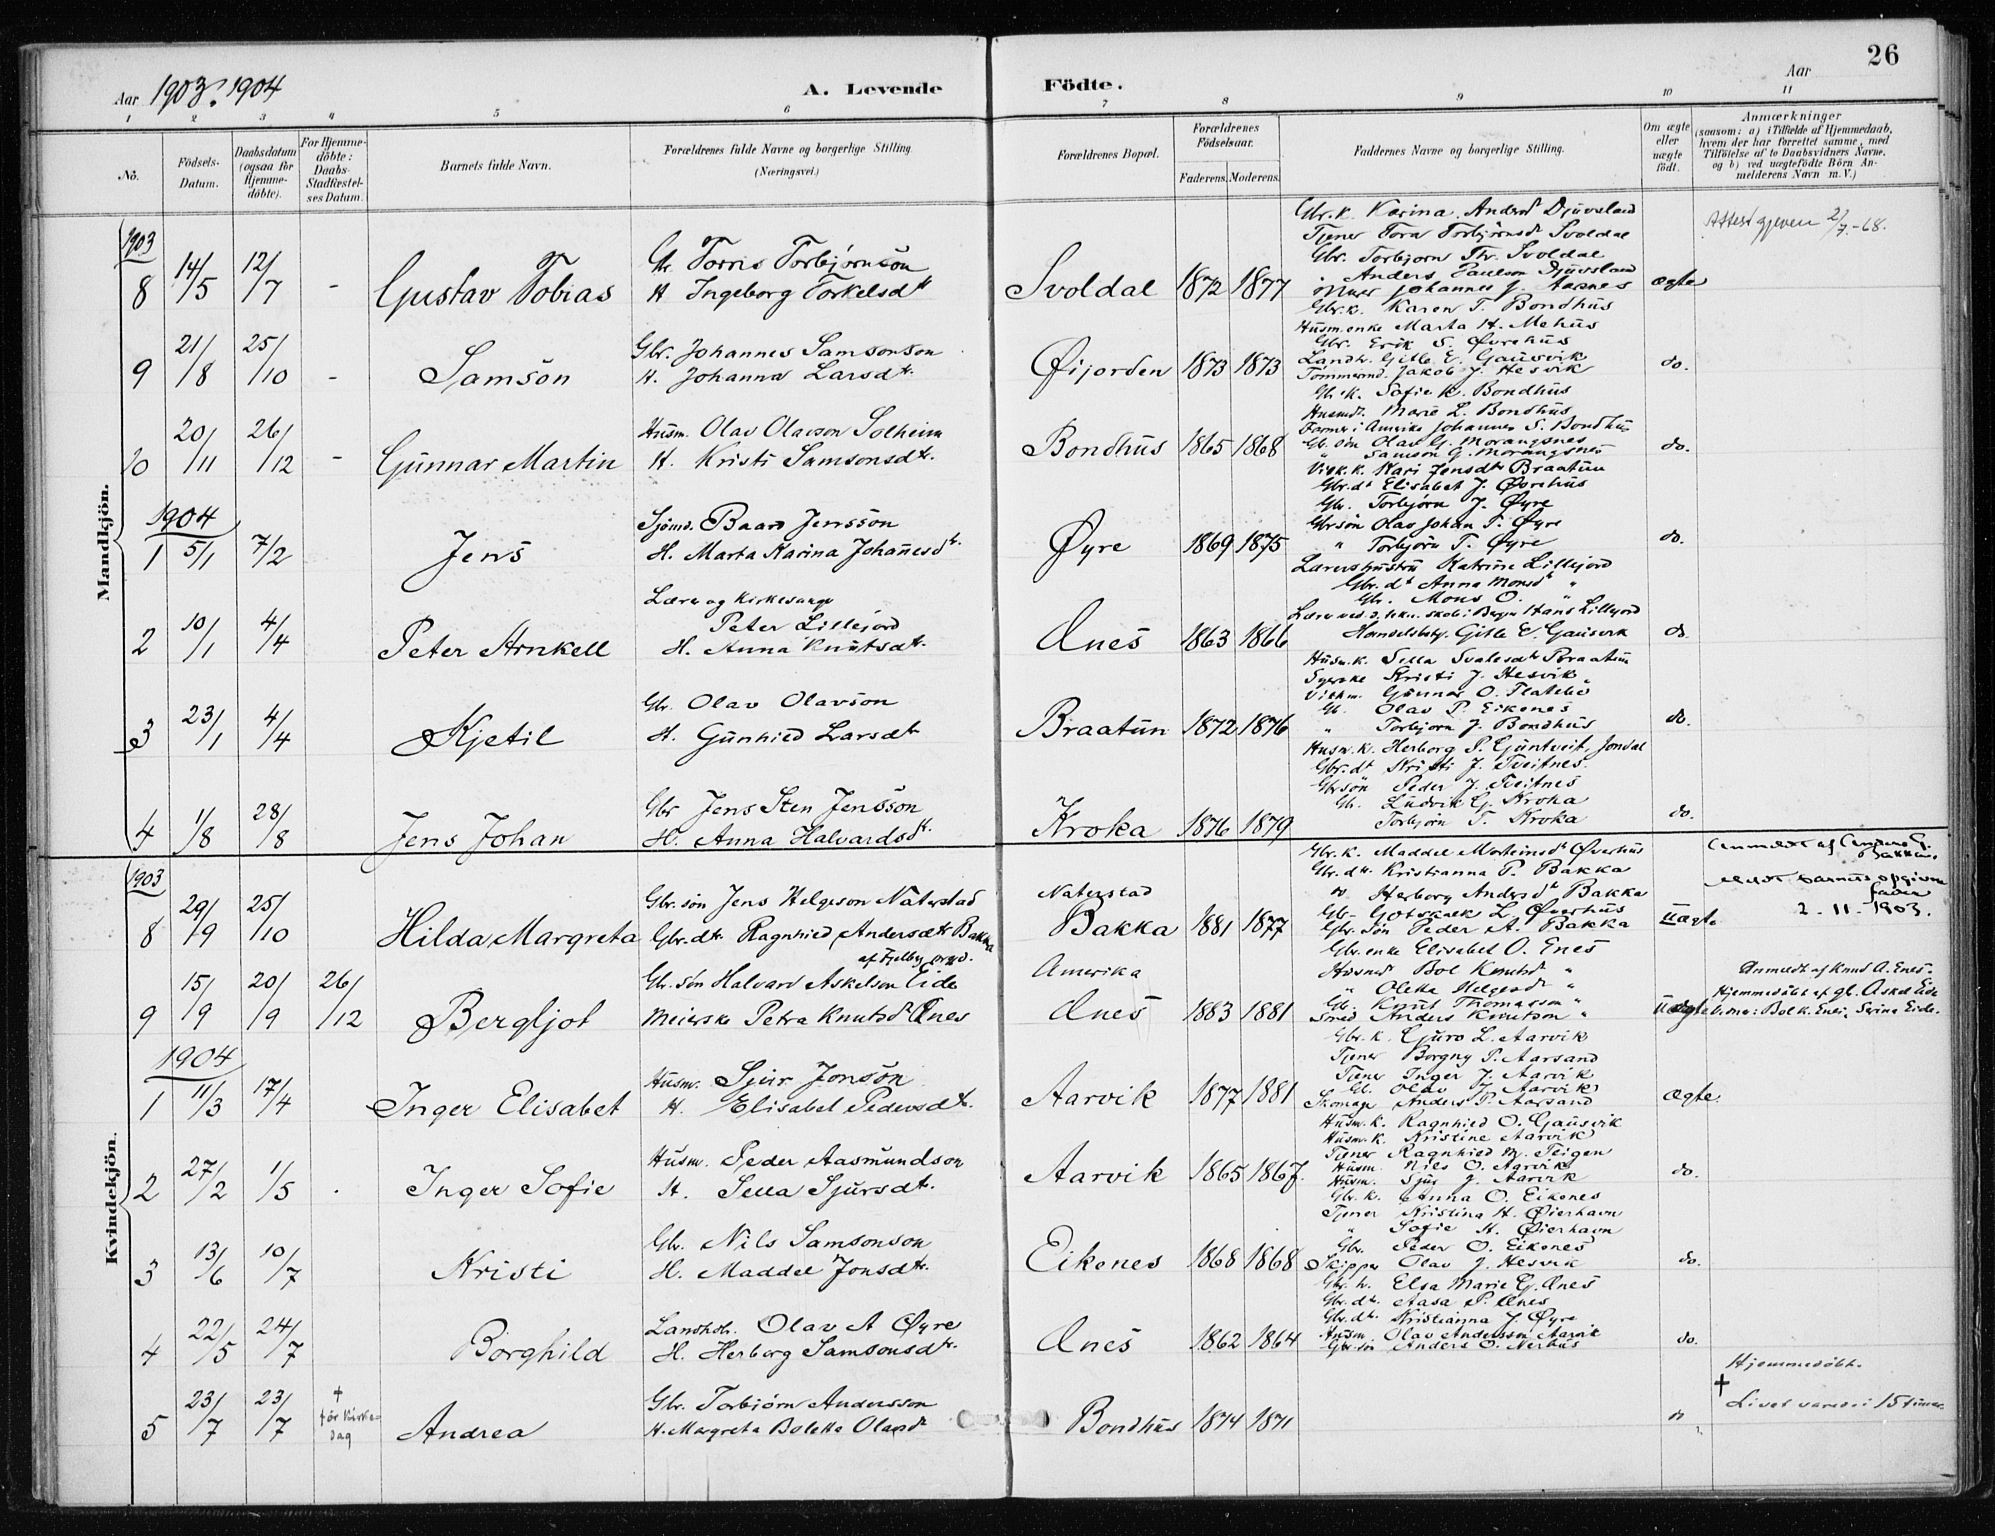 26
Aar 1903. 1904
A. Levende Födte.
Aar
1 2 3 4 5 6 7 8 9 10 11
No.
Födsels-Datum.
Daabsdatum (ogsaa for Hjemme-döbte).
For Hjemme-döbte: Daabs-Stadfæstel-ses Datum.
Barnets fulde Navn.
Forældrenes fulde Navne og borgerlige Stilling (Næringsvei.)
Forældrenes Bopæl.
Forældrenes Födselsaar.
Faderens. Moderens.
Faddernes Navne og borgerlige Stilling.
Om ægte eller uægte födt.
Anmærkninger (saasom: a) i Tilfælde af Hjemmedaab, hvem der har forrettet samme, med Tilföielse af to Daabsvidners Navne, og b) ved uægtefödte Börn An-melderens Navn m. V.)
Mandkjön.
1903
8 14/5 12/7 - Gustav Tobias
Gbr. Torris Torbjørnson
H. Ingeborg Torkelsdtr
Svoldal 1872 1877
Gbr. k. Karina Andersd Djuvsland
Tjener Tora Torbjörnsdt Svoldal
Gbr. Torbjorn Th. Svoldal
Anders Paulson Djuvsland
Murer Johannes J. Aasnes
ægte
Attest gjeven 2/7.-68.
9 21/8 25/10 - Samson
Gbr. Johannes Samsonson
H. Johanna Larsdtr.
Øijorden 1873 1873
Gbr. k. Karen T. Bondhüs
Husm. enke Marta H. Mehus
Gbr. Erik S. Øvrehüs
Landh. Gitle E. Gausvik
Tömmermd. Jakob J. Hesvik
do.
10 20/11 26/12 - Gunnar Martin
Husm. Olav Olavson Solheim
H. Kristi Samsonsdtr.
Bondhus 1865 1868
Gbr. k. Sofie K. Bondhüs
Husmdt. Marie L. Bondhüs
Farmer i Amerika Johannes S. Bondhus
Gb. sön Olav G. Morangsnes
" Samson G. Morangsnes
do.
1904
1 5/1 7/2 Jens
Sjömd. Baard Jensson
H. Marta Karina Johanesdtr.
Øyre 1869 1875
Virk. k. Kari Jensdtr Braatun
Gbr. dt Elisabet J. Øvrehüs
Gbr. Torbjörn J. Øyre
Gbrsön Olav Johan T. Øyre
" Torbjörn T. Øyre
do.
2 10/1 4/4 Peter Arnkell
Lærer og Kirkesanger
Peter Lillejord
H. Anna Knutsdtr.
Ænes 1863 1866
Lærershustru Katrine Lillejord
Gbr. dt Anna Monsdtr "
Gbr. Mons O. "
Hans Lillejord
Handelsbetj. Gitle E. Gausvik
do.
3 23/1 4/4 Kjetil
Gbr. Olav Olavson
H. Gunhild Larsdtr
Braatün 1872 1876
Husm. k. Sella Braatün
Syerske Kristi J. Hesvik
Gunnar O. Flatebö
Gb. Olav P. Eikenes
" Torbjörn J. Bondhüs
do.
4 1/8 28/8 Jens Johan
Gbr Jens Sten Jensson
H. Anna Halvardsdtr.
Kroka 1876 1879
Husm. k. Herborg P. Guntveit, Jondal
Gbr. dt Kristi J. Tveitnes
Gbrsön Peder J. Tveitnes
Gb. Ludvik G. Kroka
Torbjörn T. Kroka
do.
Kvindekjön.
1903
8 29/9 25/10 Hilda Margreta
Gbr. sön Jens Helgeson Naterstad
Gbr. dtr. Ragnhild Andersdtr Bakka
Naterstad
Bakka 1881 1877
Gbr. k. Maddel Morteinsdtr Øvrehus
Gbr. dtr. Kristianna P. Bakka
" Herborg Andersdtr Bakka
Gbr. Gotskalk L. Øvrehüs
Gbr. sön Peder A. Bakka
Uægte
Anmeldt af Anders G. Bakka.
2. 11. 1903.
9 15/9 20/9 26/12 Bergljot
Gb. sön Halvard Askelson Eide
Meierske Petra Knutsdtr Ænes
Amerika
Ænes 1883 1881
Gbr. enke Elisabet O. Enes
Bol Knutsd "
" Oletta Helgesdtr "
Gb. Knut Thomasson "
Smed Anders Knutson "
Uægte
Anmeldt af Knud A. Enes.
Hjemmedöbt af gb. Askel Eide
Bol K. Enes, Serina Eide.
1904
1 11/3 17/4 Inger Elisabet
Husm. Sjur Jonson
H. Elisabet Pedersdtr.
Aarvik 1877 1881
Gbr. k. Guro L. Aarvik
Tjener Borgny P. Aarsand
Tjener Inger J. Aarvik
Gb. Olav J. Aarvik
Skomager Anders P. Aarsand
Ægte.
2 27/2 1/5 . Inger Sofie
Husm. Peder Aasmundson
H. Sella Sjursdtr.
Aarvik 1865 1867.
Husm. k. Ragnhild O. Gausvik
Husm. k. Kristine Aarvik
Tjener Ragnhild M. Teigen
Husm. Nils O. Aarvik
Husm. Sjur J. Aarvik
do.
3 13/6 10/7 Kristi
Gbr. Nils Samsonson
H. Maddel Jonsdtr.
Eikenes 1868 1868
Gbr. k. Anna O. Eikenes
Tjener Kristina H. Øierhavn
" Sofie H. Øierhavn
Gbr. Peder O. Eikenes
Skipper Olav J. Hesvik
do.
4 22/5 24/7 Borghild
Landhdl. Olav A Øyre
H. Herborg Samsonsdtr.
Ænes 1862 1864
Gbr. k. Elsa Marie G. Ænes
Gbr. dtr. Aasa P. Ænes
Gbr. dtr. Kristianna J. Øyre
Husm. Olav Andersson Aarvik
Gbr. sön Anders O. Nerhus
do.
5 23/7 23/7 † för Kirke-dag Andrea
Gbr. Torbjörn Andersson
H. Margreta Boletta Olavsdtr
Bondhus 1874 1871
do
Hjemmedöbt.
† Livet varede i 15 timer.